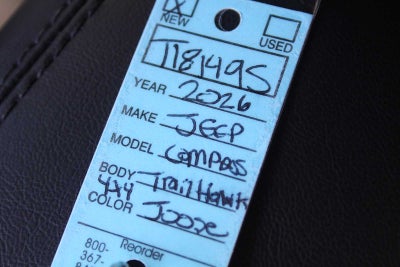 X
NEW
USED
T18149S
YEAR 2026
MAKE JEEP
MODEL Compass
BODY TrailHawk
4x4
COLOR Joose
Reorder
800-
367-